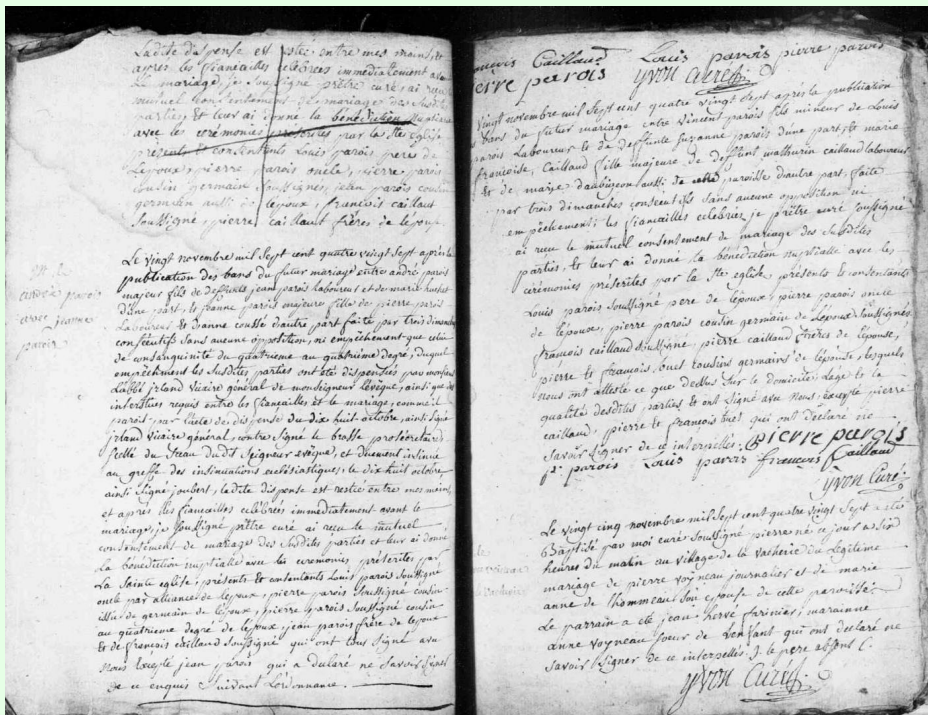 Ladite dispense est restée entre mes mains, et
après les fiançailles célébrées immédiatement avant
le mariage, je soussigné prêtre curé ai reçu
mutuel consentement de mariage des susdites
parties, et leur ai donné la bénédiction nuptiale
avec les cérémonies préscrites par la Ste église
présents et consentents Louis parois pere de
lepoux, pierre parois oncle, pierre parois
cousin germain soussignés, jean parois cousin
germain aussi de lépoux, françois caillaut
soussigné, pierre caillaut frères de lépouse
Le vingt novembre mil sept cent quatre vingt sept après la
publication des bans du futur mariage entre andré parois
majeur fils de deffunts jean parois laboureur et de marie
d'une part, et jeanne parois majeure fille de pierre parois
Laboureur et d'anne coussé d'autre part faite par trois dimanches
consécutifs sans aucune opposition, ni empêchement que celui
de consanguinité du quatrieme au quatrième degré, duquel
empêchment les susdites parties ont été dispensés par monsieur
L'abbé jrland vicaire général de monseigneur levêque, ainsi que des
interstices requis entre les fiançailles et le mariage, comme il
paroit par lacte de dispense du dix huit octobre, ainsi signé
jrland vicaire général, contre signé le brasse prosecrétaire
scellé du sceau dudit seigneur evêque, et duement insinué
au greffe des insinuations ecclésiastiques, le dix huit octobre
ainsi signé joubert, ladite dispense est restée entre mes mains,
et après les fiançailles célébrées immédiatement avant le
mariage, je soussigné prêtre curé ai reçu le mutuel
consentement de mariage des susdites parties et leur ai donné
la bénédiction nuptialle avec les cérémonies préscrites par
La sainte eglise; présents et consentants Louis parois soussigné
oncle par alliance de lépoux, pierre parois soussigné cousin
issu de germain de lépoux, pierre parois soussigné cousin
au quatrieme degré de lépoux, jean parois frère de lépoux
et de françois caillaud soussigné qui ont tous signé avec
nous excepté jean parois qui a déclaré ne savoir signer
de ce enquis suivant Lordonnance.
andré parois
avec jeanne
parois
françois Caillaud Louis parois pierre parois
pierre parois yvon curé
vingt novembre mil sept cent quatre vingt sept après la publication
bans du futur mariage entre vincent parois fils mineur de Louis
parois Laboureur et de deffunte suzanne parois dune part, et marie
françoise Caillaud fille majeure de deffunt mathurin caillaud laboureur
et de marie daubuzeon aussi de cette paroisse dautre part, faite
par trois dimanches consecutifs sans aucune opposition ni
empêchement; les fiançailles célébrées, je prêtre curé soussigné
ai reçu le mutuel consentement de mariage des susdites
parties, et leur ai donné la bénédiction nuptialle avec les
cérémonies préscrites par la Ste eglise, présents et consentants
Louis parois soussigné pere de lépoux, pierre parois oncle
de lépoux, pierre parois cousin germain de lepoux soussignés
françois caillaud soussigné, pierre caillaud frères de lépouse,
pierre et françois cousins germains de lépouse, lesquels
nous ont attesté ce que dessus sur le domicile, lage et la
qualité desdites parties et ont signé avec nous, excepté pierre
caillaud, pierre et françois qui ont déclaré ne
savoir signer de ce interpellés. pierre parois
p. parois Louis parois françois Caillaud
yvon Curé
Le vingt cinq novembre mil sept cent quatre vingt sept a été
Baptisé par moi curé soussigné pierre né ce jour a six
heures du matin au village de la vacherie du légitime
mariage de pierre voyneau journalier et de marie
anne de lhommeau son epouse de cette paroisse.
Le parrain a été jean hervé farinier; marainne
anne voyneau soeur de lenfant qui ont déclaré ne
savoir signer de ce interpellés. le pere absent
yvon Curé